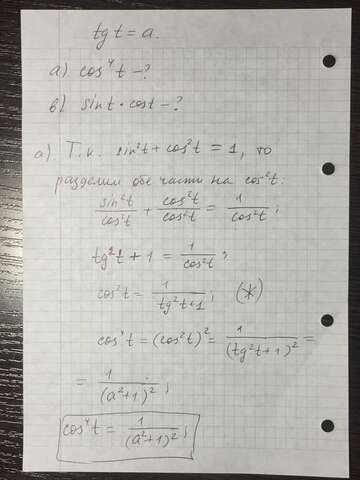 tg t = a.
а) cos⁴t - ?
в) sint · cost - ?
а) Т.к. sin²t + cos²t = 1, то
разделим обе части на cos²t:
sin²t/cos²t + cos²t/cos²t = 1/cos²t;
tg²t + 1 = 1/cos²t;
cos²t = 1/(tg²t+1); (*)
cos⁴t = (cos²t)² = 1/(tg²t+1)² =
= 1/(a²+1)²;
cos⁴t = 1/(a²+1)²;